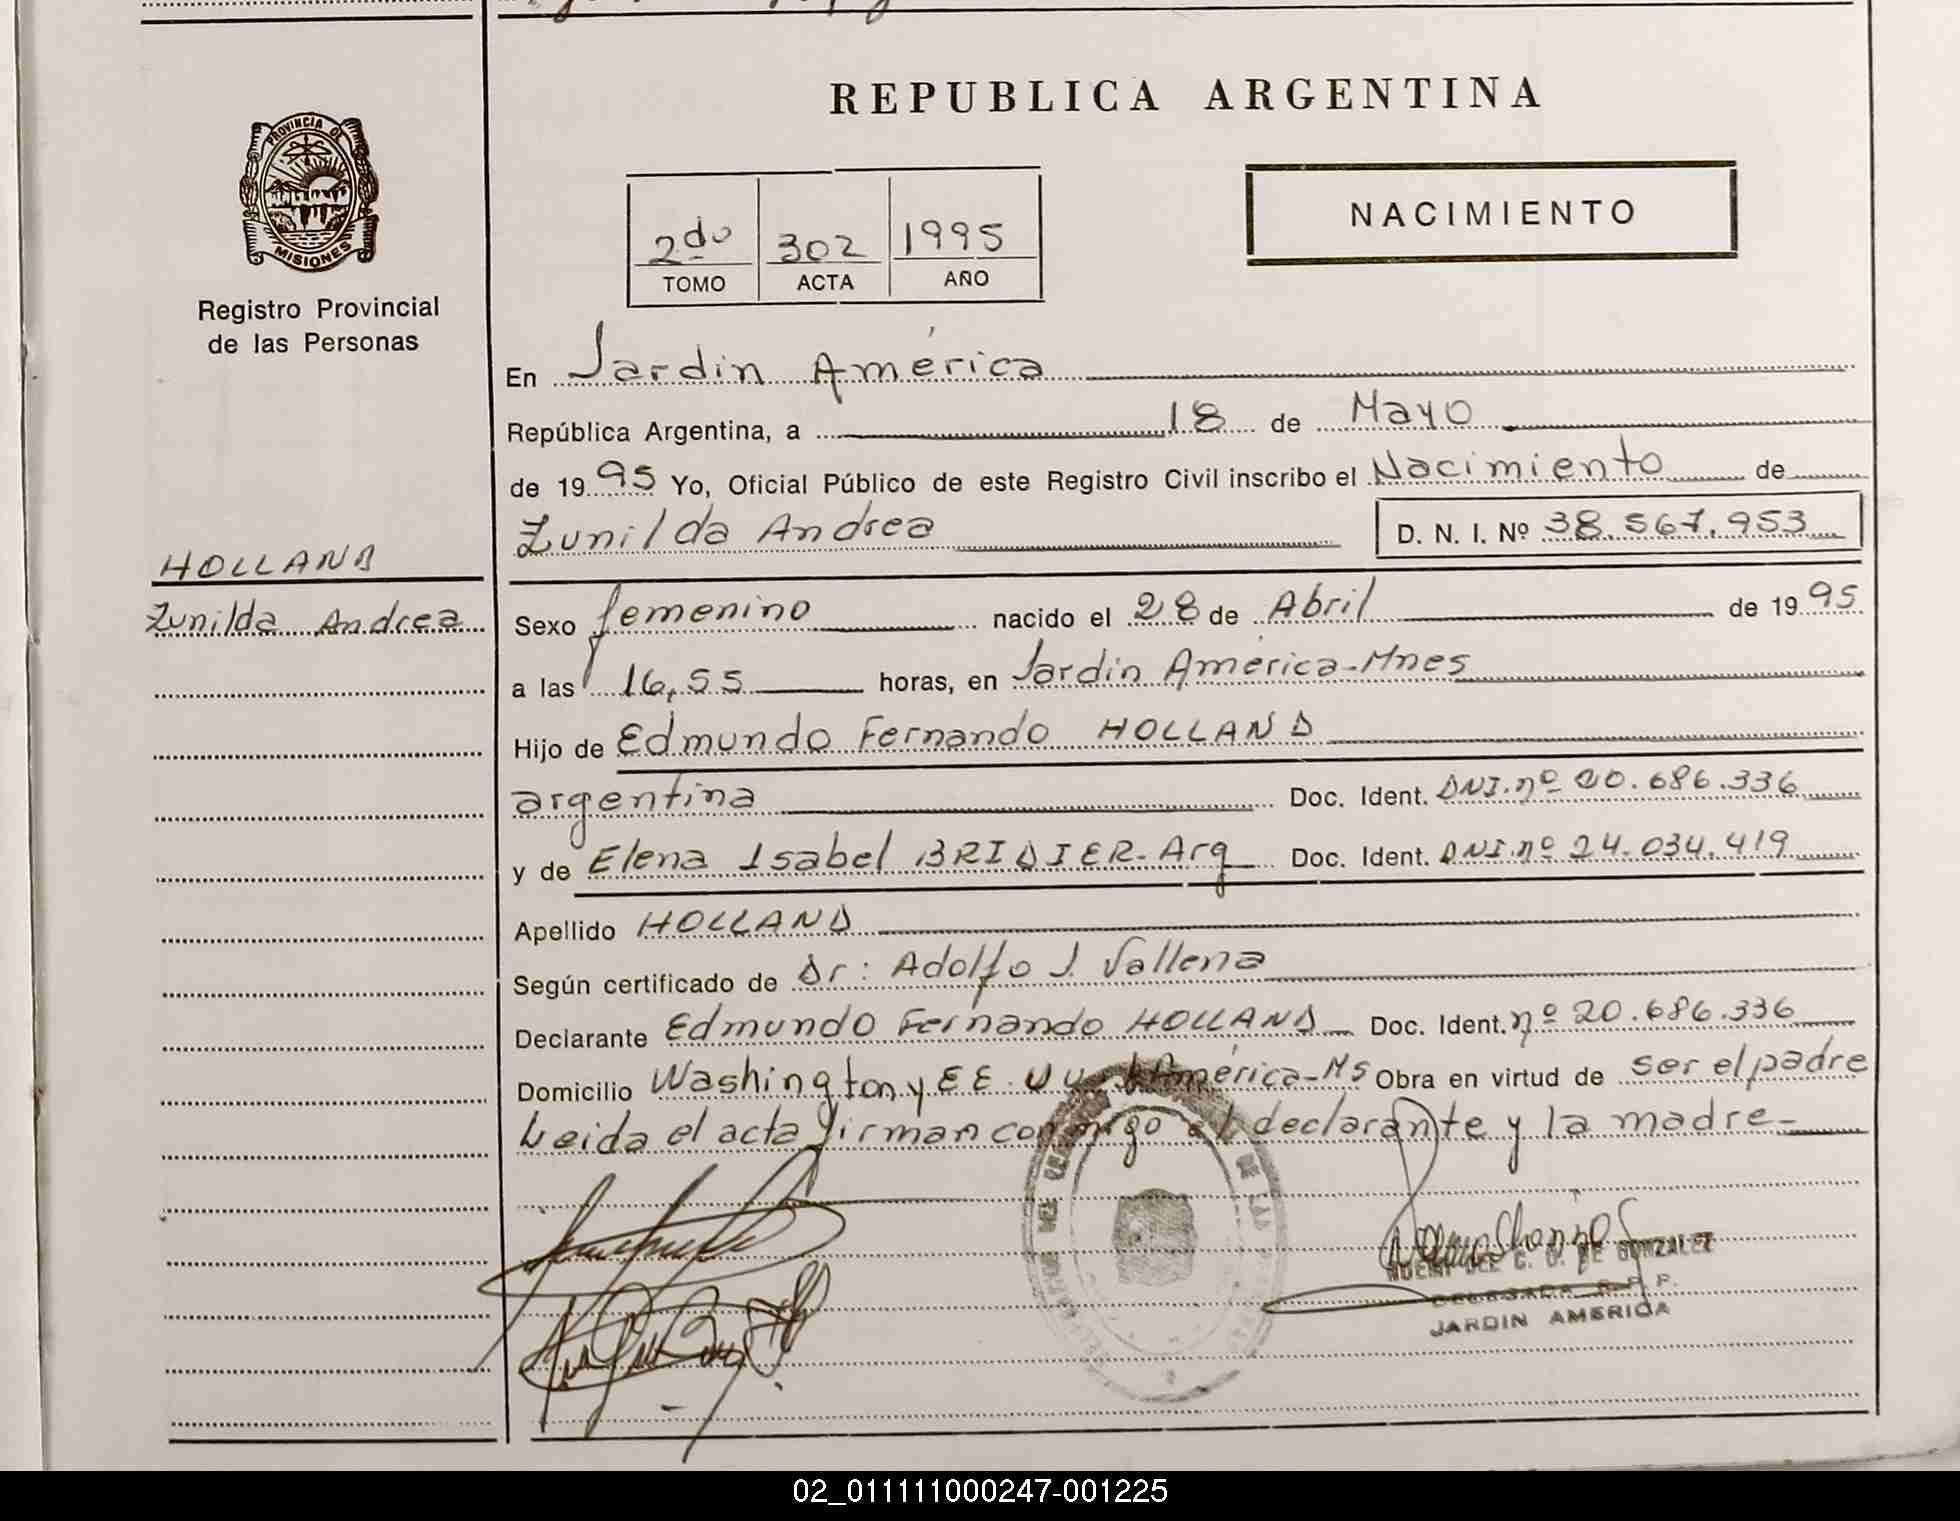 REPUBLICA ARGENTINA
PROVINCIA DE
MISIONES
Registro Provincial
de las Personas
2do 302 1995
TOMO ACTA AÑO
NACIMIENTO
En Jardin América
República Argentina, a 18 de Mayo
de 1995 Yo, Oficial Público de este Registro Civil inscribo el Nacimiento de
Zunilda Andrea D. N. I. Nº 38.567.953
HOLLAND
Zunilda Andrea
Sexo femenino nacido el 28 de Abril de 1995
a las 16,55 horas, en Jardin América-Mnes
Hijo de Edmundo Fernando HOLLAND
argentina Doc. Ident. DNI.nº 20.686.336
y de Elena Isabel BRIDIER-Arg Doc. Ident. DNI.nº 24.034.419
Apellido HOLLAND
Según certificado de Dr: Adolfo J. Vallena
Declarante Edmundo Fernando HOLLAND Doc. Ident. nº 20.686.336
Domicilio Washington y EE.UU América-Ms Obra en virtud de ser el padre
Leida el acta firman conmigo el declarante y la madre-
C. D. DE GONZALEZ
DELEGADA R. P. P.
JARDIN AMERICA
02_011111000247-001225